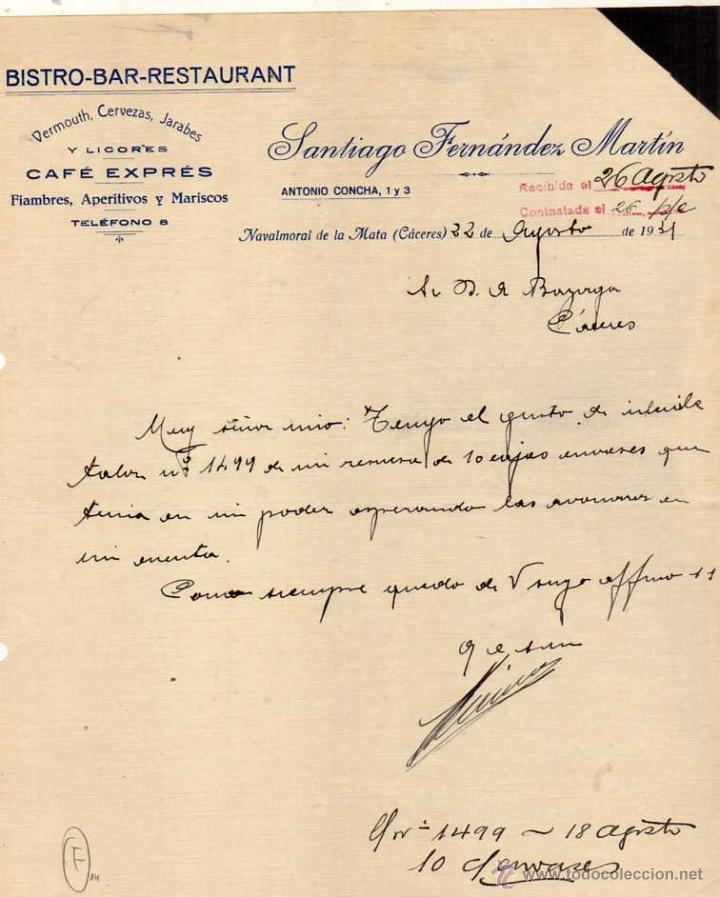 BISTRO-BAR-RESTAURANT
Vermouth, Cervezas, Jarabes
Y LICORES
CAFÉ EXPRÉS
Fiambres, Aperitivos y Mariscos
TELÉFONO 8
Santiago Fernández Martín
ANTONIO CONCHA, 1 y 3
Recibida el 26 Agosto
Contestada el 26 p/c
Navalmoral de la Mata (Cáceres) 22 de Agosto de 1931
Sr D. A Bazaga
Cáceres
Muy señor mio: Tengo el gusto de incluirle
talon nº 1499 de mi remesa de 10 cajas envases que
tenia en mi poder esperando las abonara en
mi cuenta.
Como siempre quedo de V suyo affmo ss
q e s m
1499 - 18 agosto
10 c/ envases
F
www.todocoleccion.net